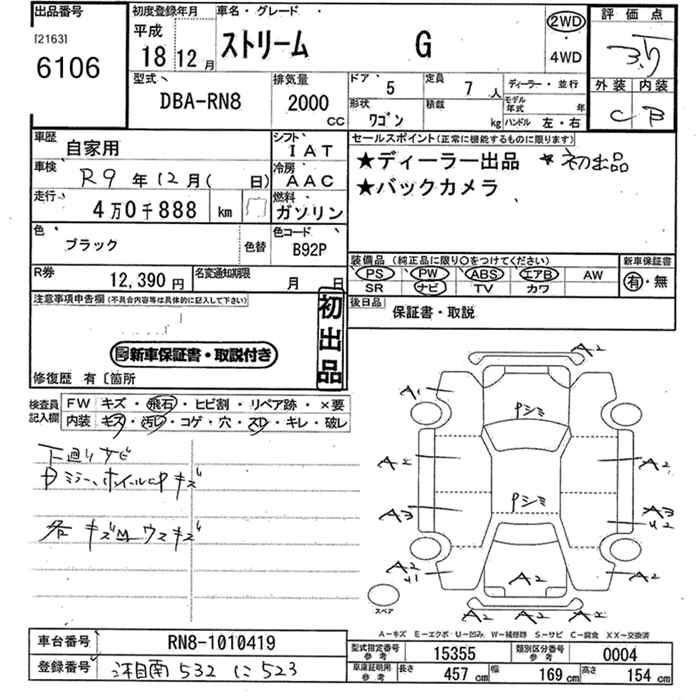 出品番号
[2163]
6106
初度登録年月
平成
18 12 月
車名・グレード
ストリーム G
2WD
4WD
評価点
3.5
外装 内装
C B
型式
DBA-RN8
排気量
2000 CC
ドア 5
定員 7 人
ディーラー・並行
形状 ワゴン
積載 kg
モデル年式 年
ハンドル 左・右
車歴 自家用
シフト IAT
車検 R9 年 12 月( 日)
冷房 AAC
走行 4万0千888 km
燃料 ガソリン
色 ブラック 色替
色コード B92P
R券 12,390 円
名変通知期限 月 日
セールスポイント(正常に機能するものに限ります)
★ディーラー出品 ★初出品
★バックカメラ
装備品 (純正品に限り○をつけてください)
PS PW ABS エアB AW
SR ナビ TV カワ
新車保証書
有・無
後日品
保証書・取説
注意事項申告欄(不具合内容等は具体的に記入して下さい)
新車保証書・取説付き
初出品
修復歴 有〔箇所
検査員記入欄
FW キズ・飛石・ヒビ割・リペア跡・×要
内装 キズ・汚レ・コゲ・穴・スレ・キレ・破レ
下廻りサビ
ミラー、ホイールcP キズ
各 キズM ウスキズ
A2
A1
Pシミ
A2 A2
Pシミ
A3 A3
U2
A2 A2 A2
U1
A2 A2
スペア
A-キズ E-エクボ U-凹み W-補修跡 S-サビ C-腐食 XX-交換済
車台番号 RN8-1010419
登録番号 湘南 532 に 523
型式指定番号 参考 15355
類別区分番号 参考 0004
車庫証明用 参考 長さ 457 cm 幅 169 cm 高さ 154 cm